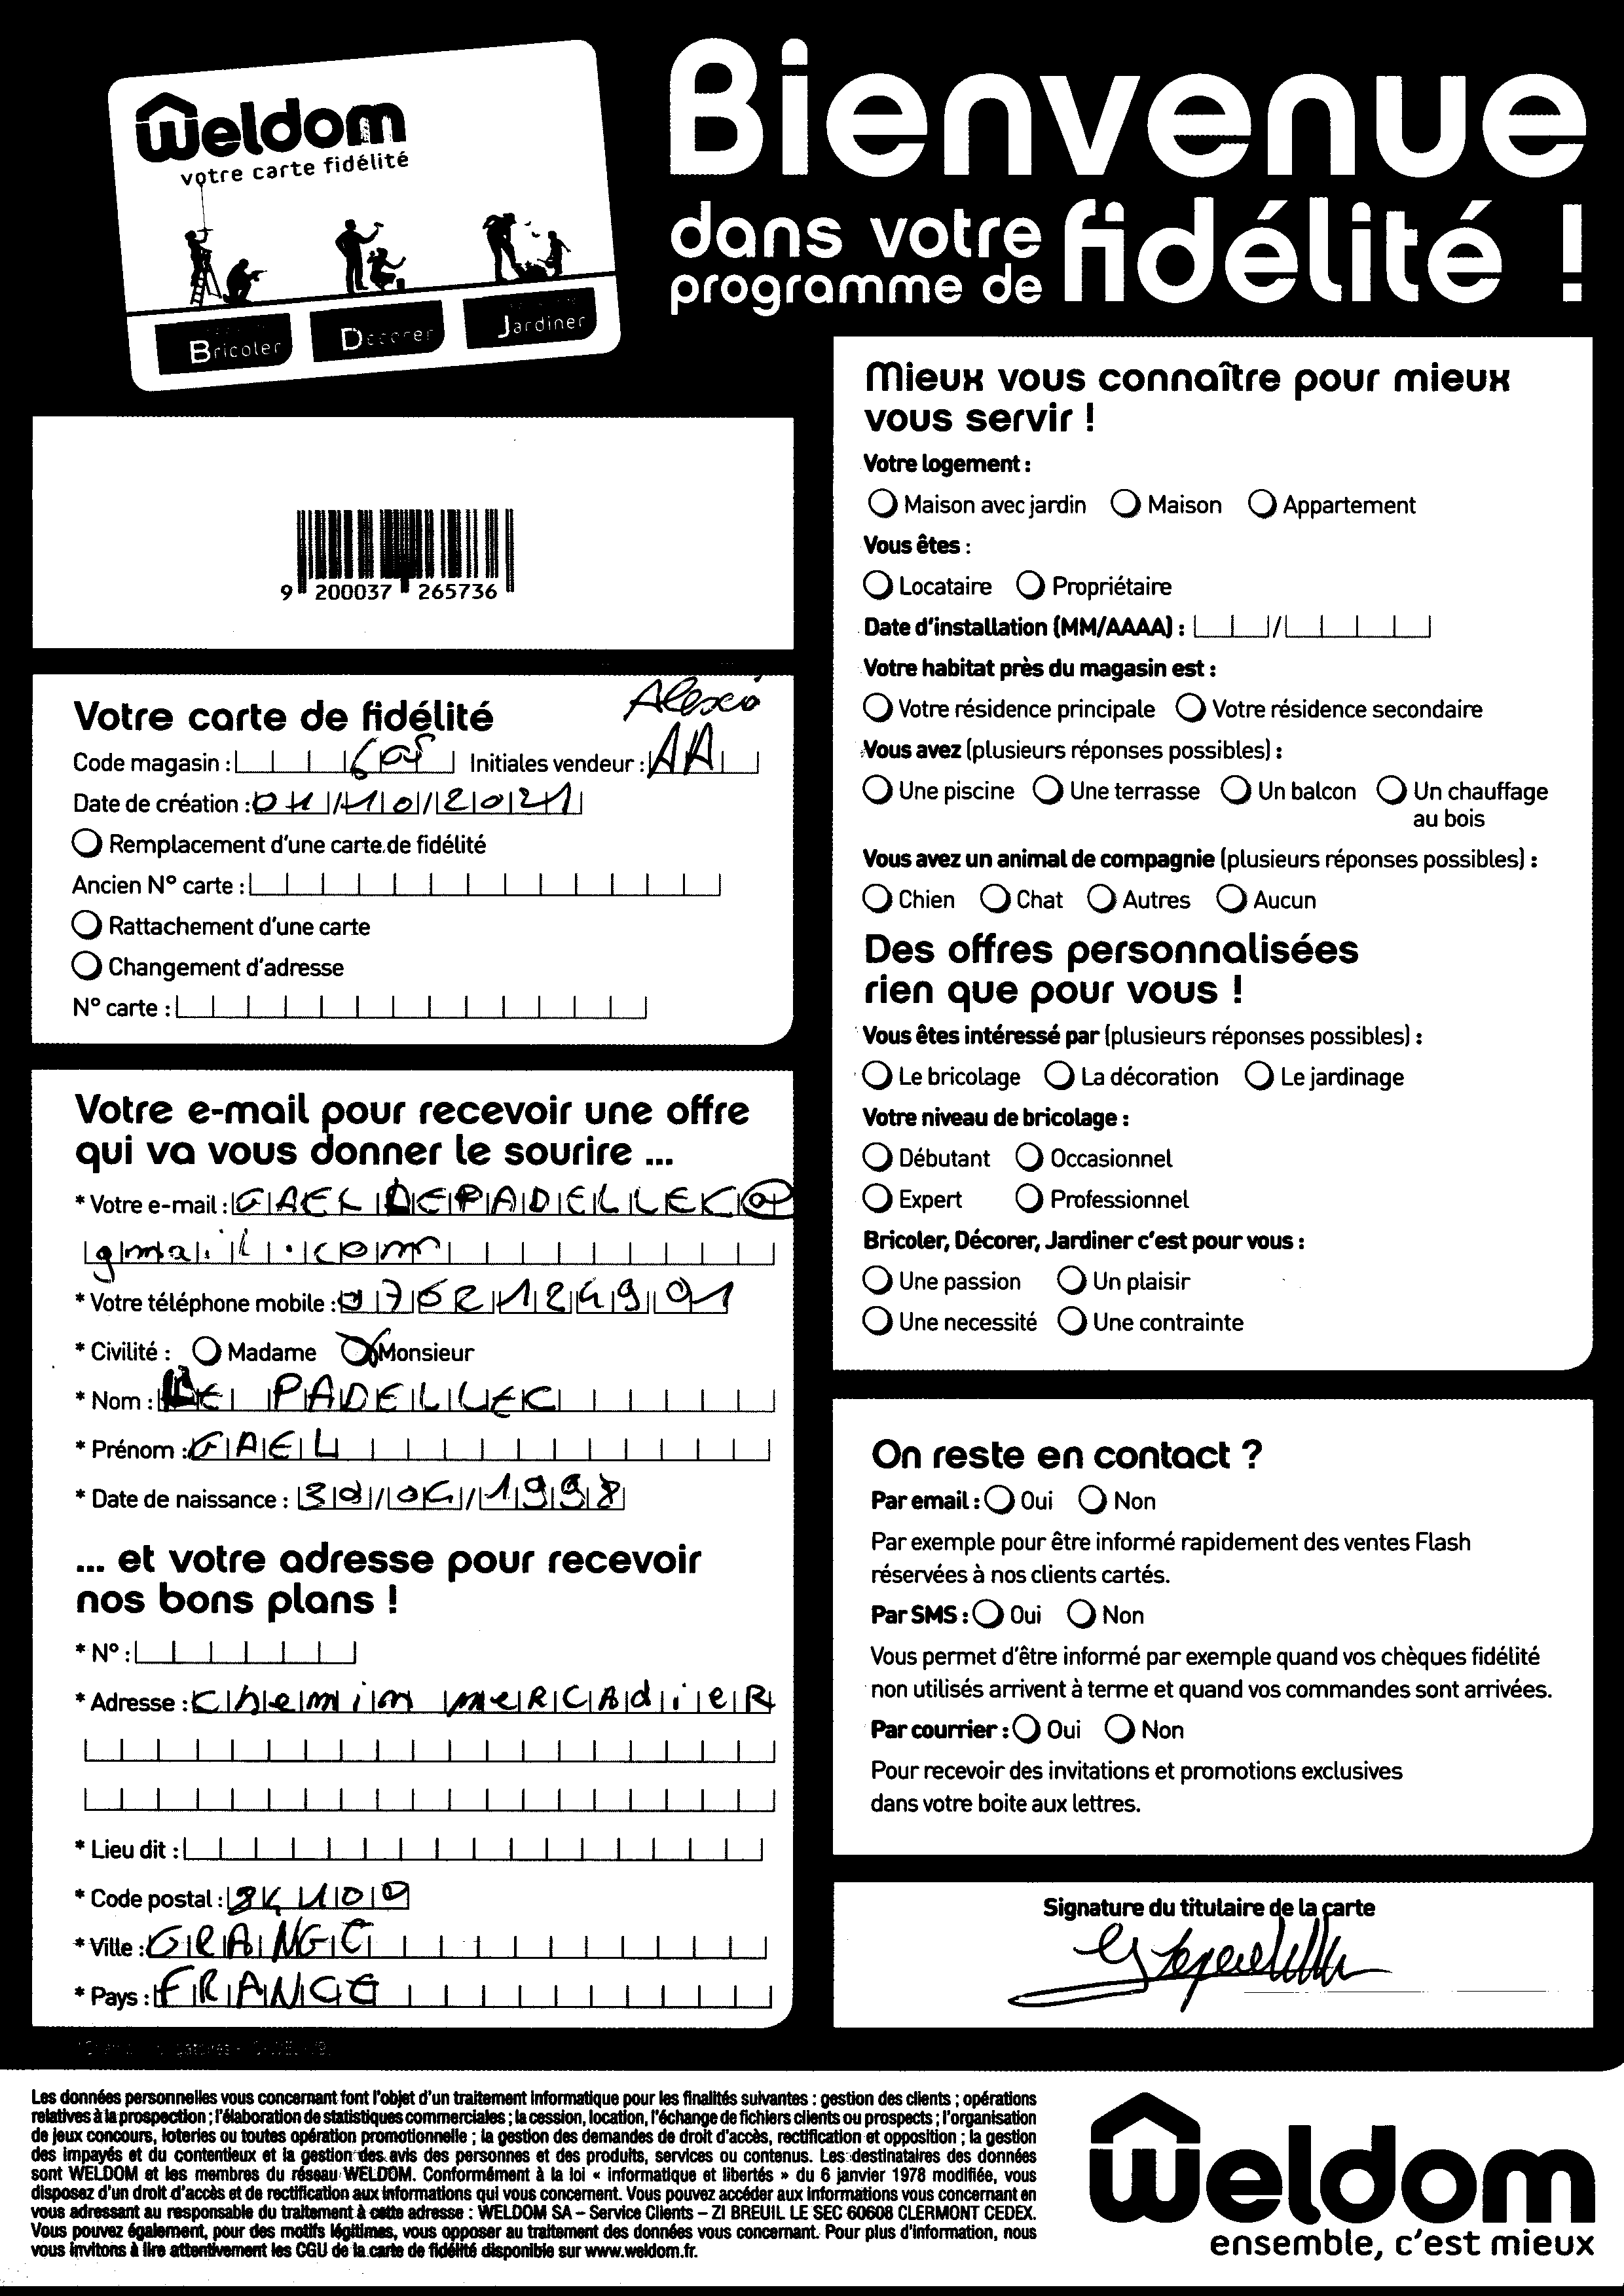 weldom
votre carte fidélité
Bricoler Décorer Jardiner
Bienvenue
dans votre
programme de fidélité !
9 200037 265736
Alexia
Votre carte de fidélité
Code magasin : 605 Initiales vendeur : AA
Date de création : 01/10/2021
Remplacement d'une carte de fidélité
Ancien N° carte :
Rattachement d'une carte
Changement d'adresse
N° carte :
Votre e-mail pour recevoir une offre
qui va vous donner le sourire ...
* Votre e-mail : GAELDEPADELLEC@
gmail.com
* Votre téléphone mobile : 0762124901
* Civilité : Madame Monsieur
* Nom : DE PADELLEC
* Prénom : GAEL
* Date de naissance : 30/06/1998
... et votre adresse pour recevoir
nos bons plans !
* N° :
* Adresse : Chemin meRCAdieR
* Lieu dit :
* Code postal : 84100
* Ville : ORANGE
* Pays : FRANCE
Mieux vous connaître pour mieux
vous servir !
Votre logement :
Maison avec jardin Maison Appartement
Vous êtes :
Locataire Propriétaire
Date d'installation (MM/AAAA) : /
Votre habitat près du magasin est :
Votre résidence principale Votre résidence secondaire
Vous avez (plusieurs réponses possibles) :
Une piscine Une terrasse Un balcon Un chauffage
au bois
Vous avez un animal de compagnie (plusieurs réponses possibles) :
Chien Chat Autres Aucun
Des offres personnalisées
rien que pour vous !
Vous êtes intéressé par (plusieurs réponses possibles) :
Le bricolage La décoration Le jardinage
Votre niveau de bricolage :
Débutant Occasionnel
Expert Professionnel
Bricoler, Décorer, Jardiner c'est pour vous :
Une passion Un plaisir
Une necessité Une contrainte
On reste en contact ?
Par email : Oui Non
Par exemple pour être informé rapidement des ventes Flash
réservées à nos clients cartés.
Par SMS : Oui Non
Vous permet d'être informé par exemple quand vos chèques fidélité
non utilisés arrivent à terme et quand vos commandes sont arrivées.
Par courrier : Oui Non
Pour recevoir des invitations et promotions exclusives
dans votre boite aux lettres.
Signature du titulaire de la carte
Les données personnelles vous concernant font l'objet d'un traitement informatique pour les finalités suivantes : gestion des clients ; opérations
relatives à la prospection ; l'élaboration de statistiques commerciales ; la cession, location, l'échange de fichiers clients ou prospects ; l'organisation
de jeux concours, loteries ou toutes opération promotionnelle ; la gestion des demandes de droit d'accès, rectification et opposition ; la gestion
des impayés et du contentieux et la gestion des avis des personnes et des produits, services ou contenus. Les destinataires des données
sont WELDOM et les membres du réseau WELDOM. Conformément à la loi « informatique et libertés » du 6 janvier 1978 modifiée, vous
disposez d'un droit d'accès et de rectification aux informations qui vous concernent. Vous pouvez accéder aux informations vous concernant en
vous adressant au responsable du traitement à cette adresse : WELDOM SA – Service Clients – ZI BREUIL LE SEC 60608 CLERMONT CEDEX.
Vous pouvez également, pour des motifs légitimes, vous opposer au traitement des données vous concernant. Pour plus d'information, nous
vous invitons à lire attentivement les CGU de la carte de fidélité disponible sur www.weldom.fr.
weldom
ensemble, c'est mieux